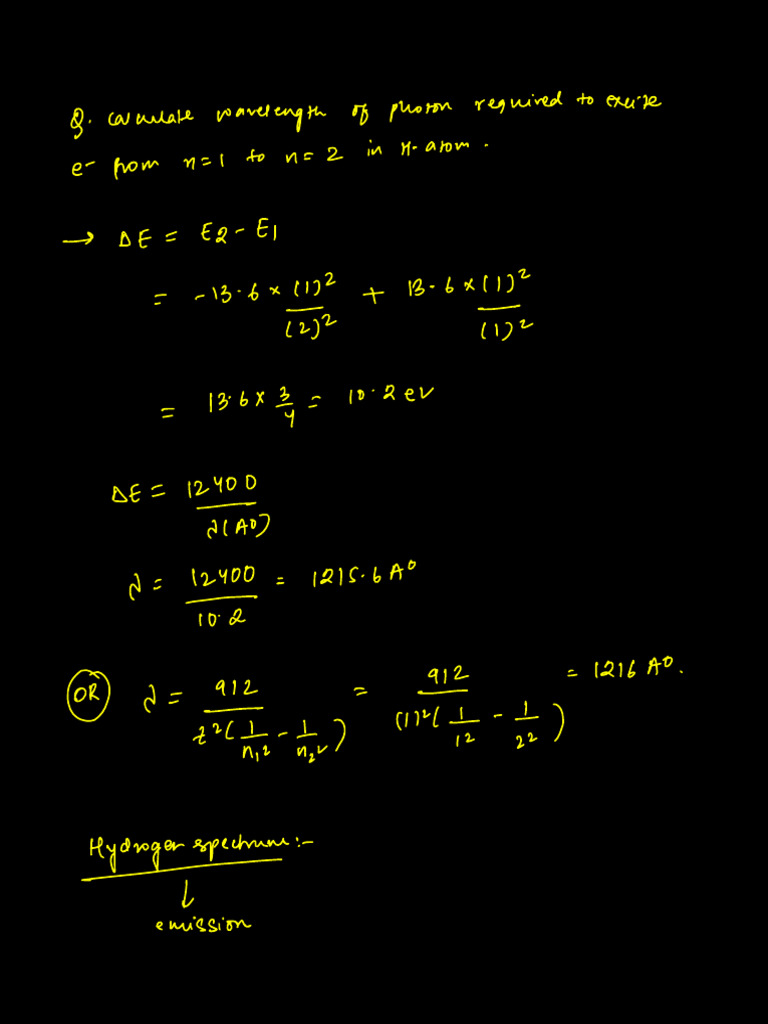 Q. Calculate wavelength of photon required to excite
e- from n=1 to n=2 in H-atom.
→ ΔE = E2 - E1
= -13.6 × (1)²/(2)² + 13.6 × (1)²/(1)²
= 13.6 × 3/4 = 10.2 eV
ΔE = 12400/λ(A0)
λ = 12400/10.2 = 1215.6 A0
OR λ = 912/z²(1/n₁² - 1/n₂²) = 912/(1)²(1/1² - 1/2²) = 1216 A0.
Hydrogen spectrum:-
↓
emission